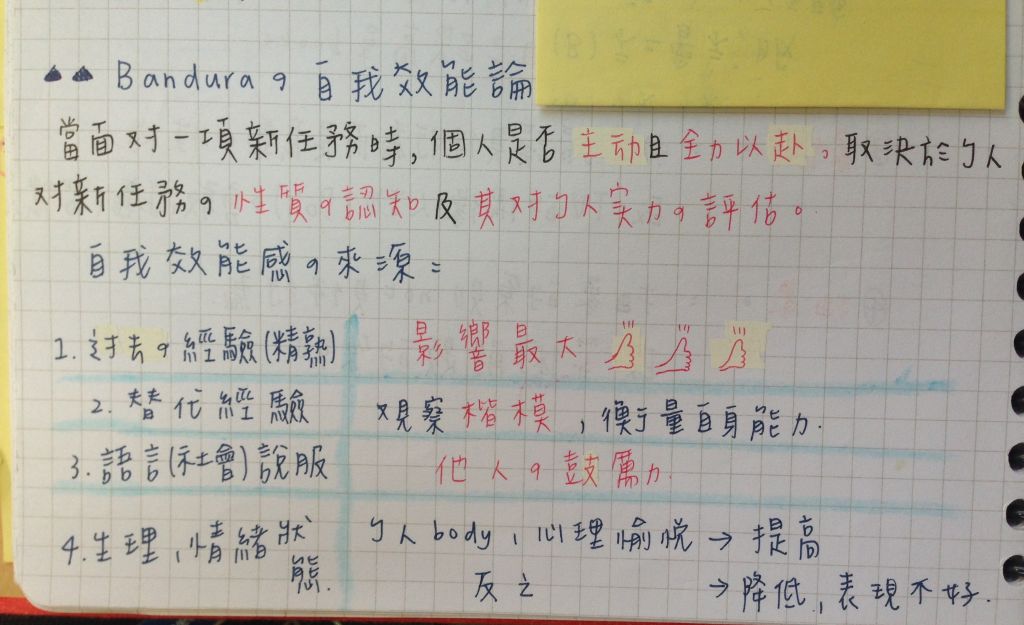 Bandura の 自我效能論
當面对一項新任務時, 個人是否主动且全力以赴。取決於个人
对新任務の性質の認知及其对个人实力の評估。
自我效能感の來源=
1. 过去の經驗(精熟) 影響最大
2. 替代經驗 观察楷模, 衡量自身能力.
3. 語言(社會)說服 他人の鼓勵
4. 生理, 情緒狀態. 个人body, 心理愉悅 → 提高
反之 → 降低, 表現不好.